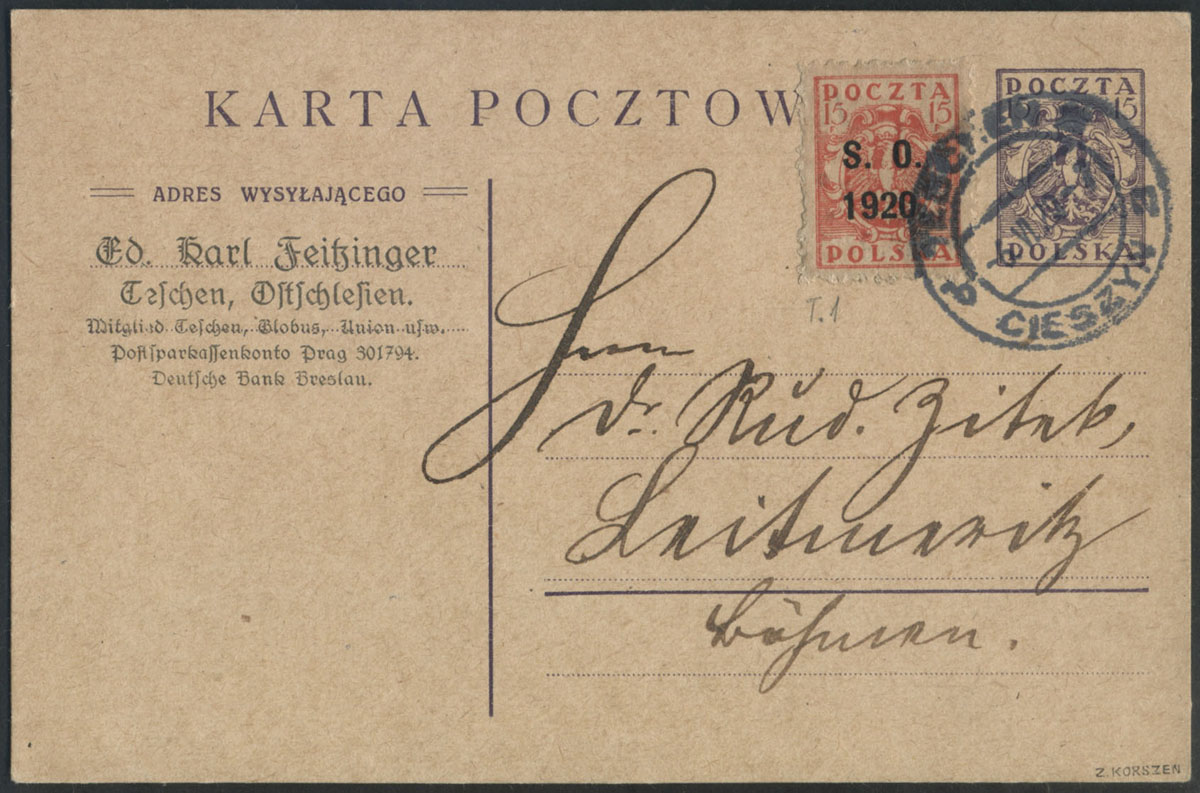 KARTA POCZTOW
POCZTA
15 15
S. O.
1920
POLSKA
POCZTA
15 15
POLSKA
CIESZYN
ADRES WYSYŁAJĄCEGO
Ed. Karl Feitzinger
Teschen, Ostschlesien.
Mitglied Teschen, Globus, Union usw.
Postsparkassenkonto Prag 301794.
Deutsche Bank Breslau.
T.1
Herrn
Dr. Rud. Zitek,
Leitmeritz
Böhmen.
Z. KORSZEŃ